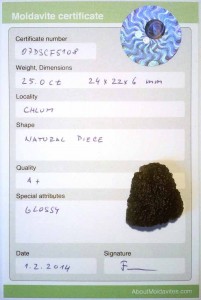 Moldavite certificate
Certificate number
Weight, Dimensions
25.0ct 24x22x6 mm
Locality
CHLUM
Shape
NATURAL PIECE
Quality
A+
Special attributes
GLOSSY
Date
Signature
1.2.2014
AboutMoldavites.com